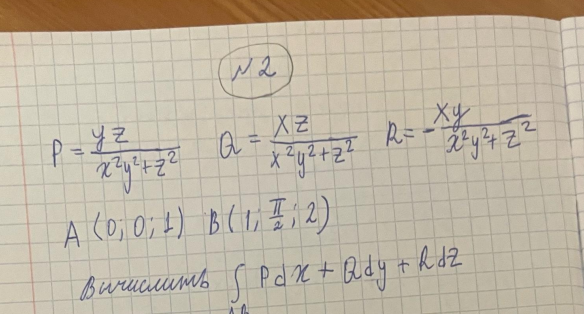 №2
P = yz / (x²y²+z²)   Q = xz / (x²y²+z²)   R = - xy / (x²y²+z²)
A (0; 0; 1)   B (1; π/2; 2)
Вычислить ∫_AB Pdx + Qdy + Rdz